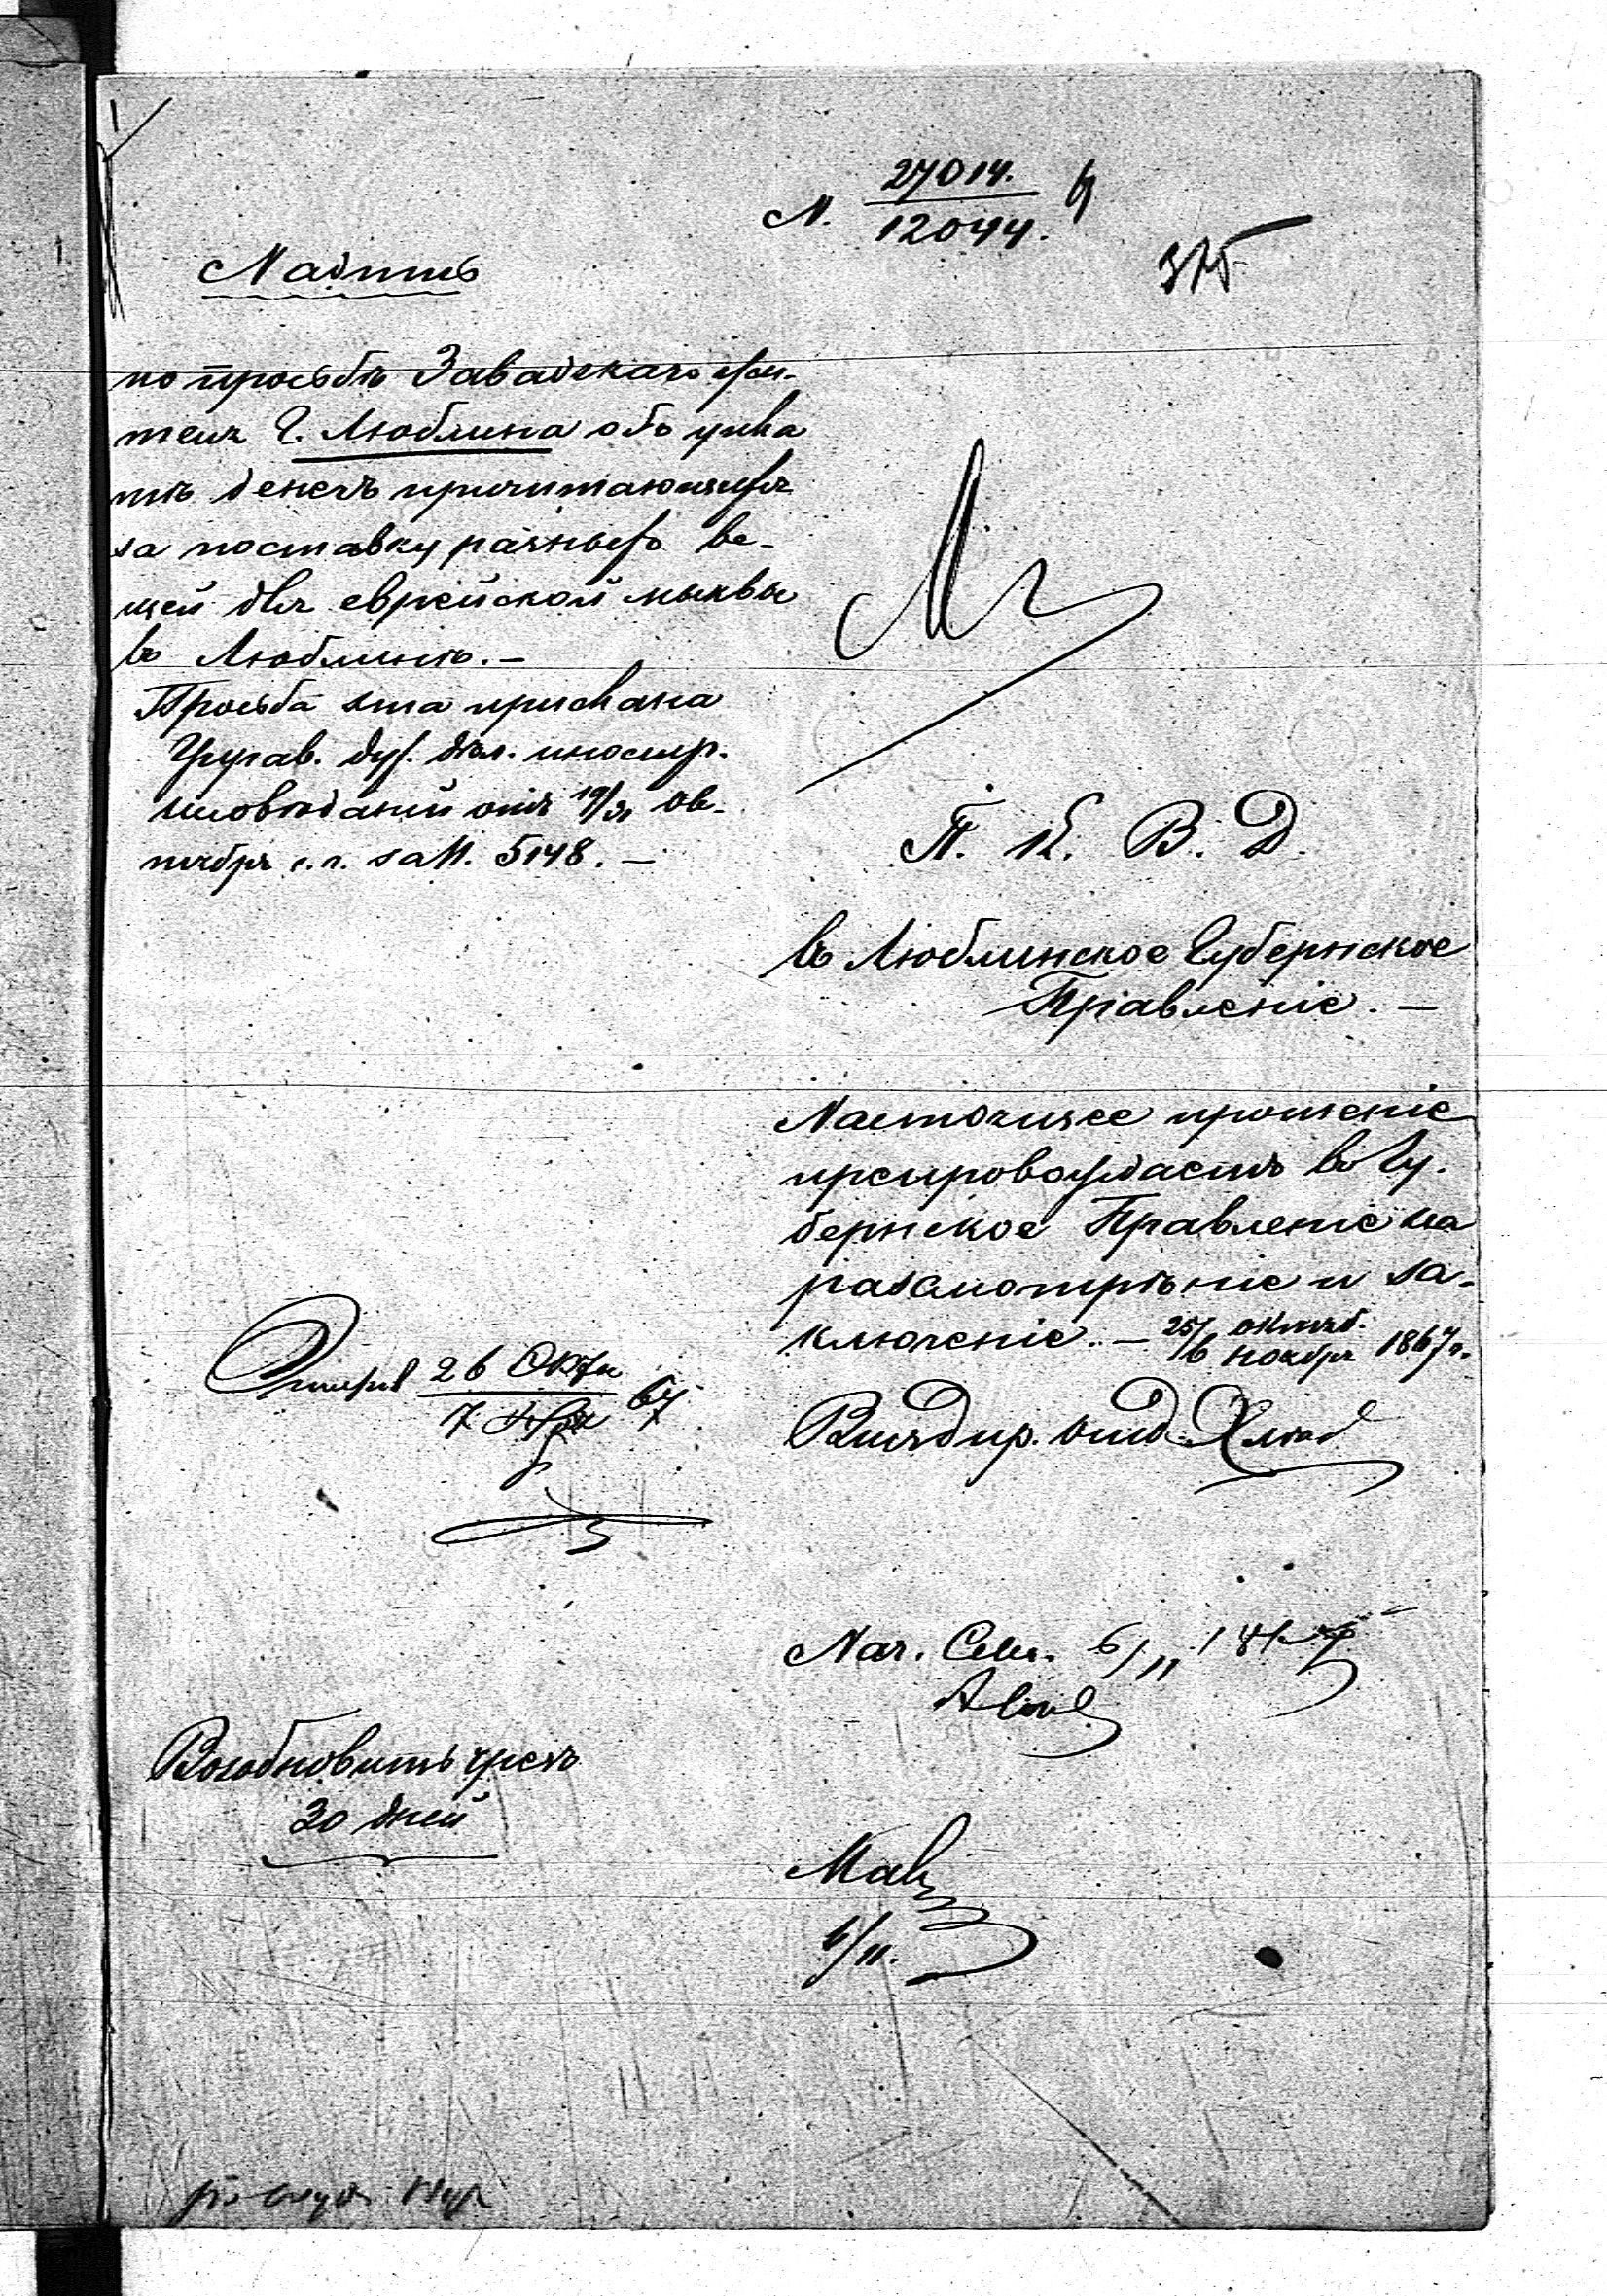 N. 27014. / 12044.
Надпись
по просьбѣ Завадскаго жи-
теля г. Люблина объ упла
тѣ денегъ причитающихся
за поставку разныхъ ве-
щей для еврейской мыквы
въ Люблинѣ. —
Просьба эта прислана
Управ. дух. дѣл. иностр.
исповѣданій отъ 19/31 ок-
тября с. г. за N. 5148. —
П. К. В. Д.
въ Люблинское Губернское
Правленіе. —
Настоящее прошеніе
препровождаетъ въ Гу-
бернское Правленіе на
разсмотрѣніе и за-
ключеніе. — 25/6 октяб. ноября 1867 г.
26 Окт / 7 67
Вицедир. отд.
Нач. Секц. 6/11
Возобновить чрезъ
30 дней
6/11.